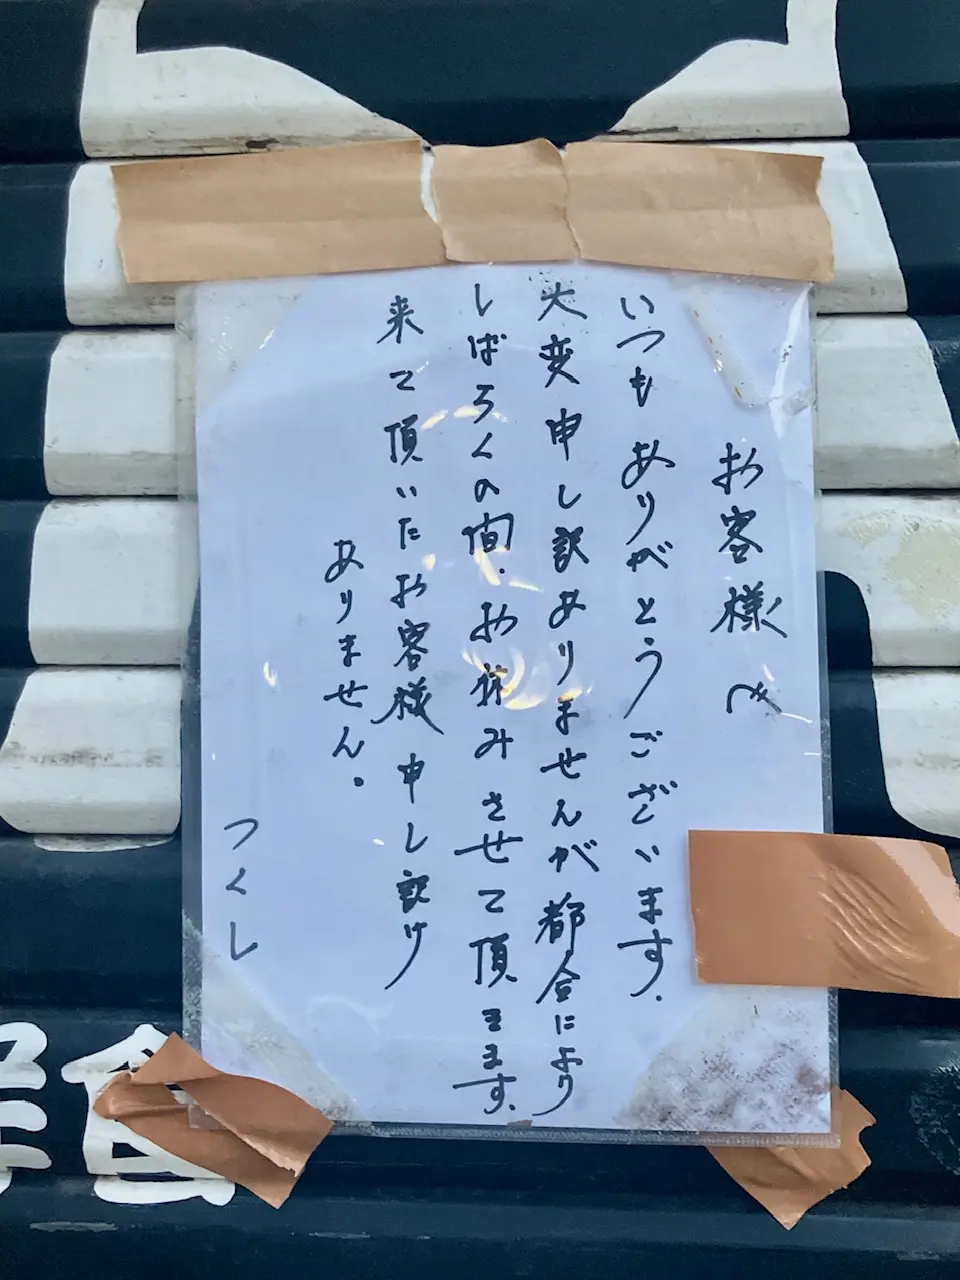 お客様へ
いつもありがとうございます。
大変申し訳ありませんが都合により
しばらくの間、お休みさせて頂きます。
来て頂いたお客様申し訳け
ありません。
つくし
洋食